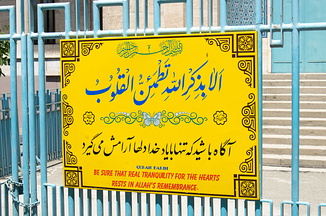 قال الله تعالی
الا بذکر الله تطمئن القلوب
آگاه باشید که تنها با یاد خدا دلها آرامش می‌گیرد
BE SURE THAT REAL TRANQUILITY FOR THE HEARTS
RESTS IN ALLAH'S REMEMBRANCE.